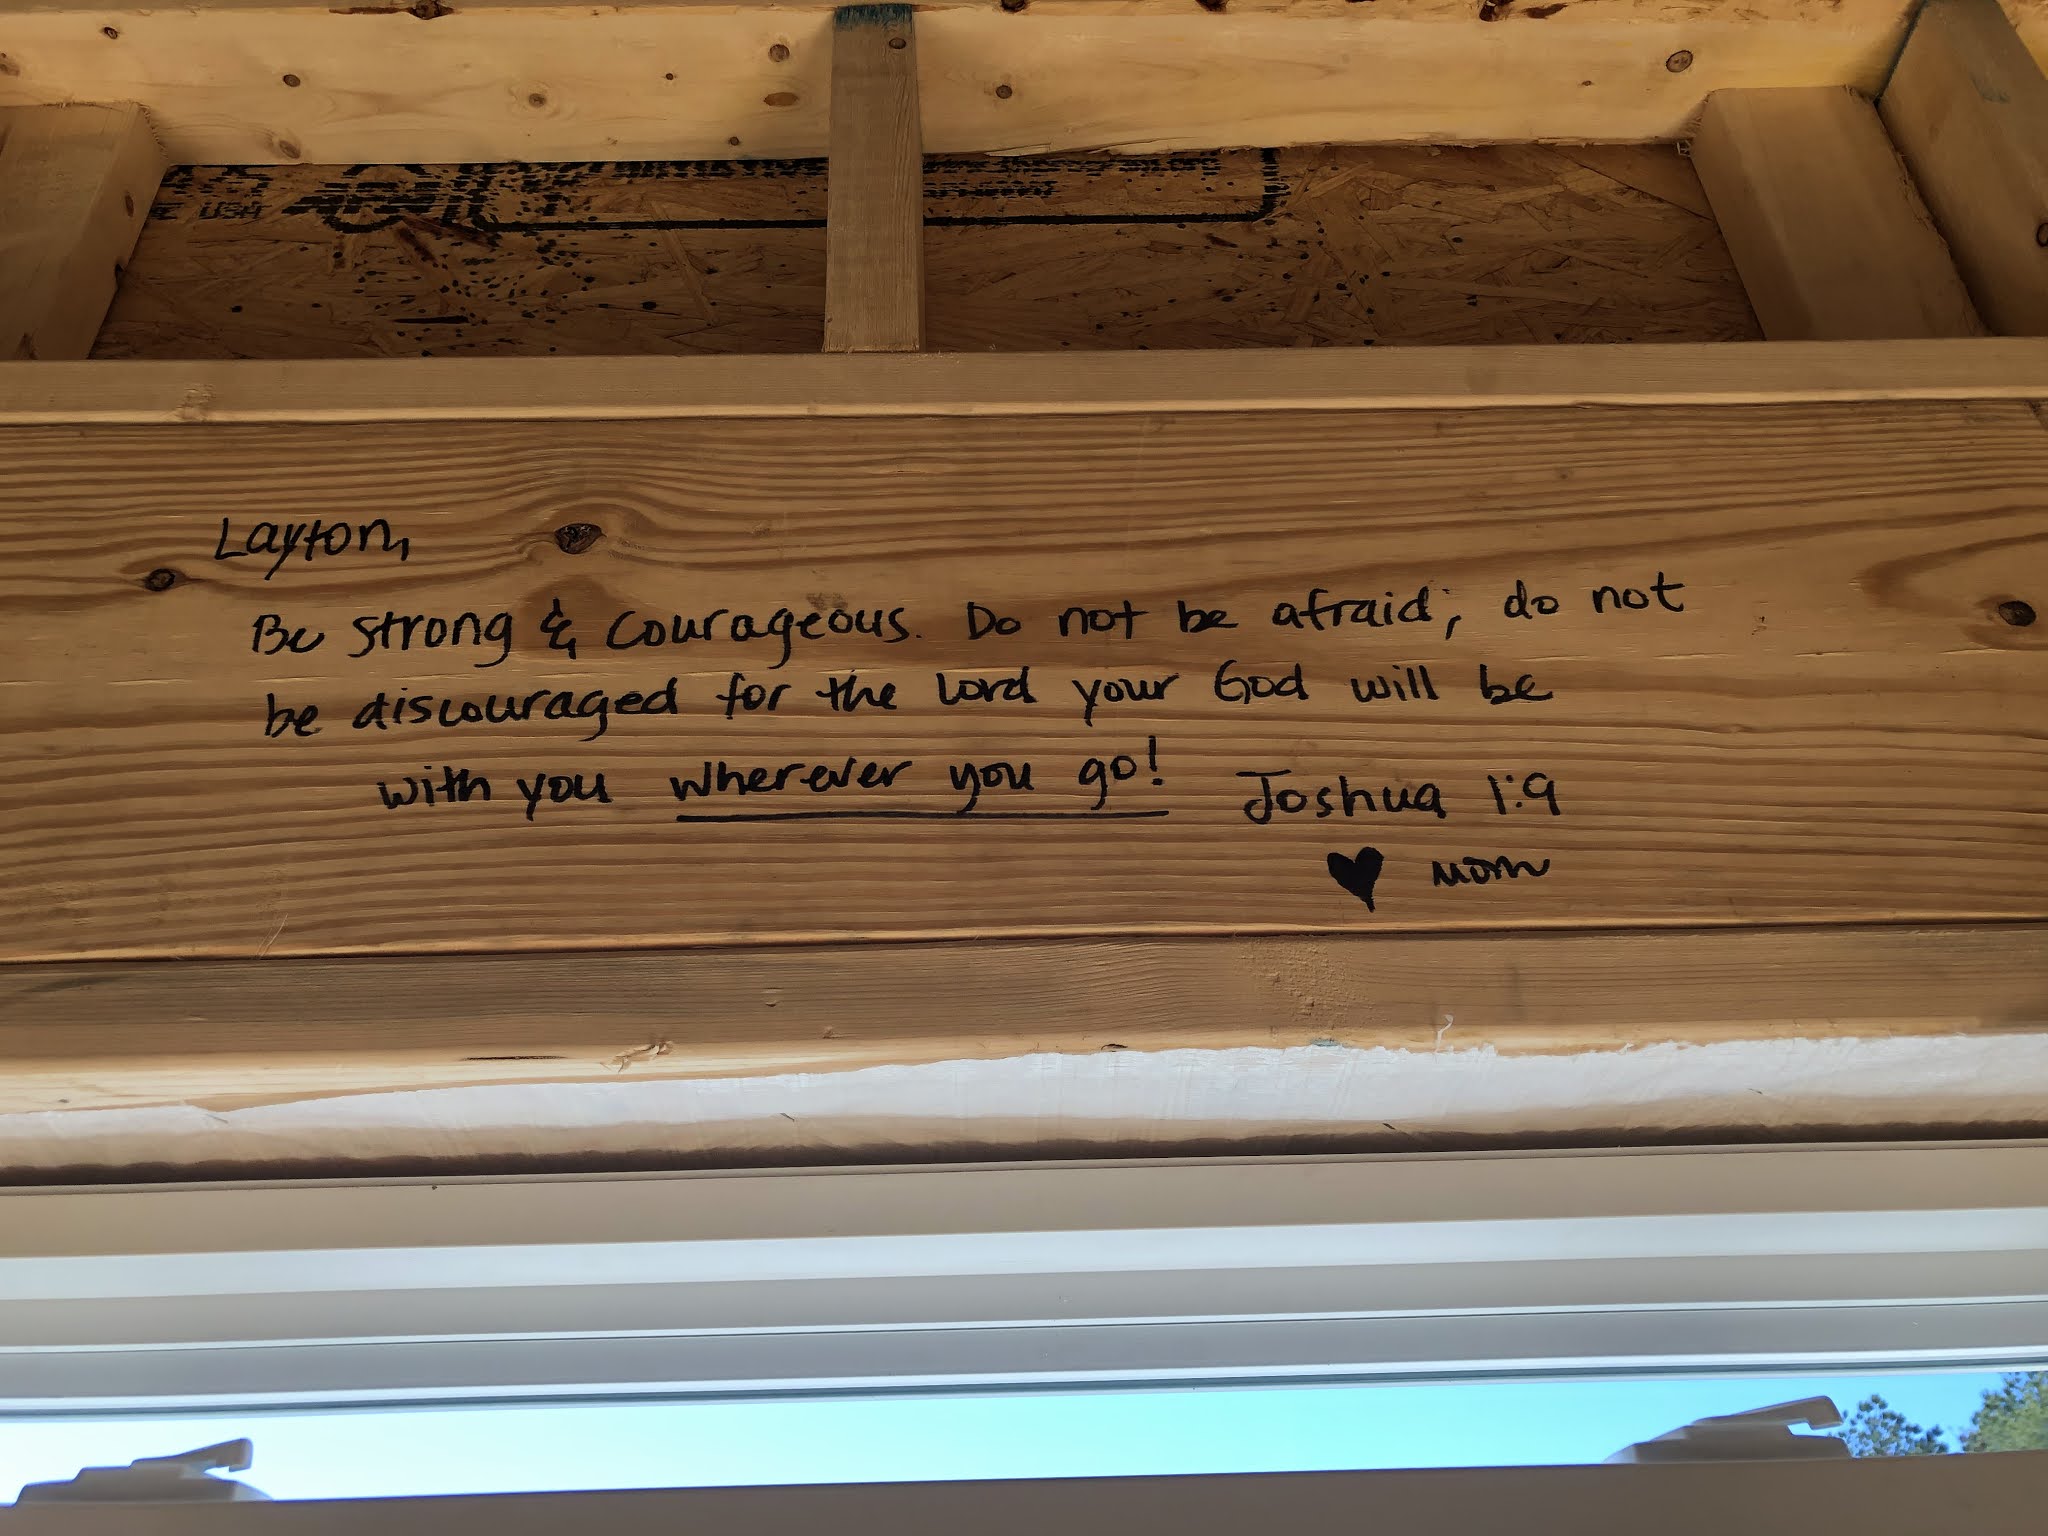 E USA
Layton,
Be strong & courageous. Do not be afraid; do not
be discouraged for the Lord your God will be
with you wherever you go! Joshua 1:9
♥ Mom